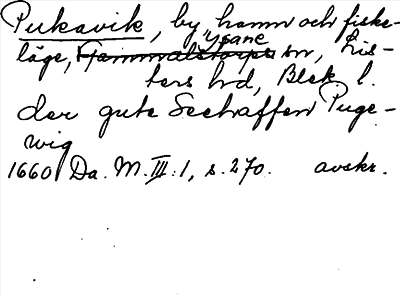 Pukavik, by, hamn och fiske-
läge, Gammalstorps Ysane sn, Lis-
ters hd, Blek. l.
der gute Seehaffen Puge-
wig
1660 Da. M. III:1, s. 270. avskr.